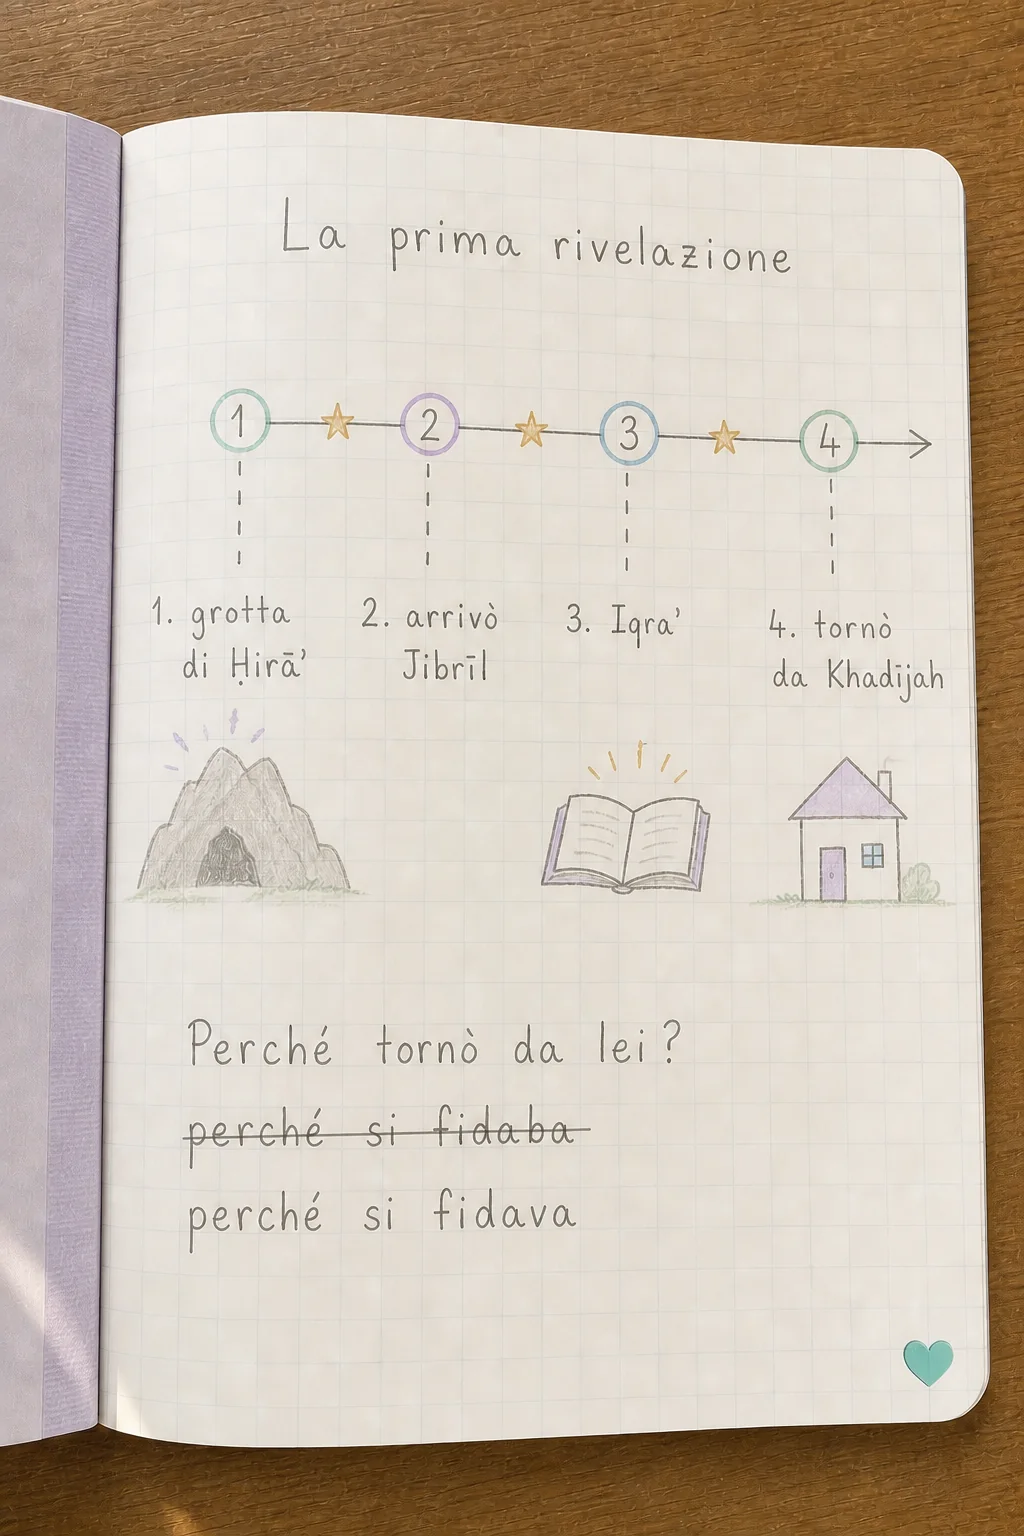 La prima rivelazione
1 2 3 4
1. grotta
di Ḥirā’
2. arrivò
Jibrīl
3. Iqra’
4. tornò
da Khadījah
Perché tornò da lei?
perché si fidaba
perché si fidava